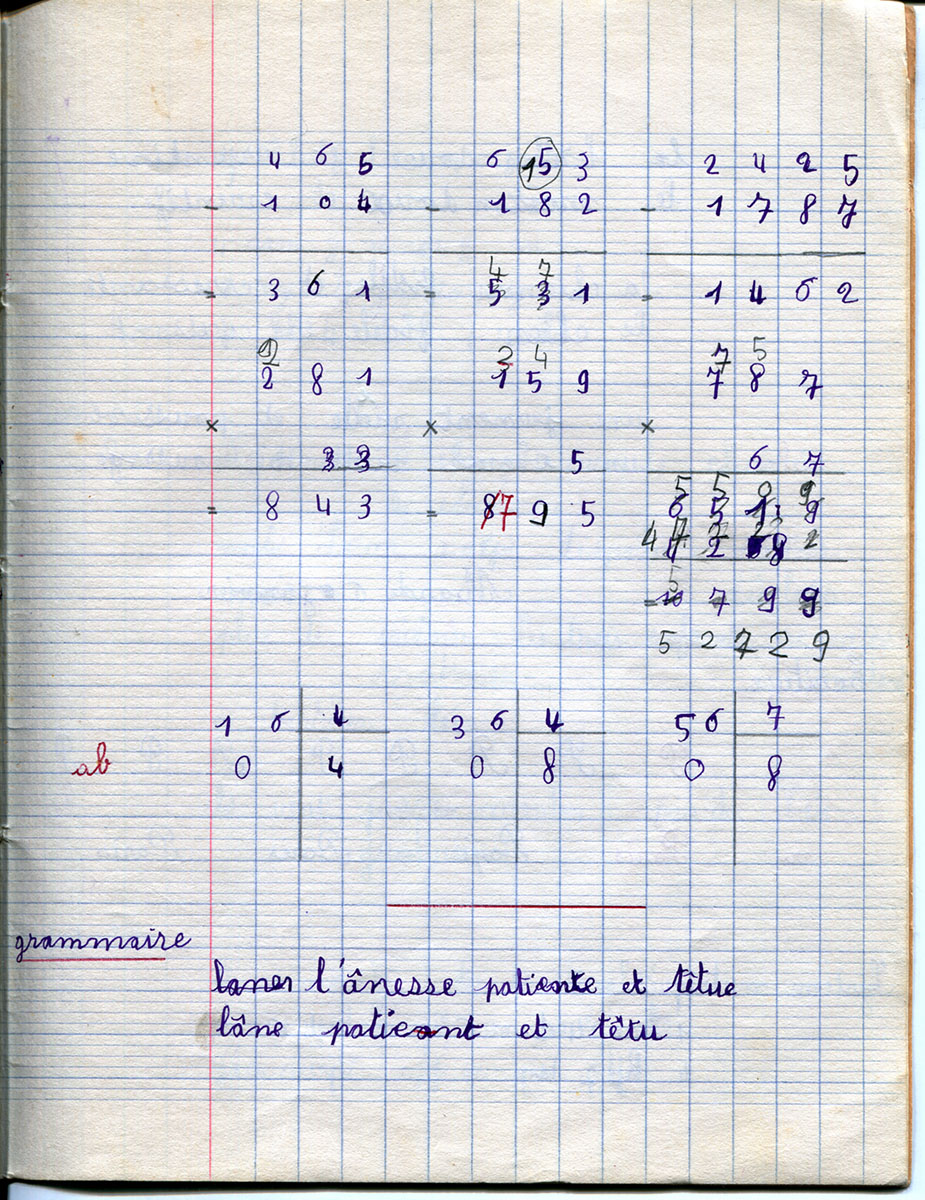 4 6 5 6 15 3 2 4 2 5
- 1 0 4 - 1 8 2 - 1 7 8 7
4 7
= 3 6 1 = 5 3 1 = 1 4 6 2
2 2 4 7 5
2 8 1 1 5 9 7 8 7
× × ×
3 3 5 6 7
5 5 0 9
= 8 4 3 = 8 7 9 5 6 5 1 9
4 7 2 2
5
= 7 9 9
5 2 7 2 9
1 6 4 3 6 4 5 6 7
ab 0 4 0 8 0 8
grammaire
l'ânesse patiente et têtue
lâne patient et têtu